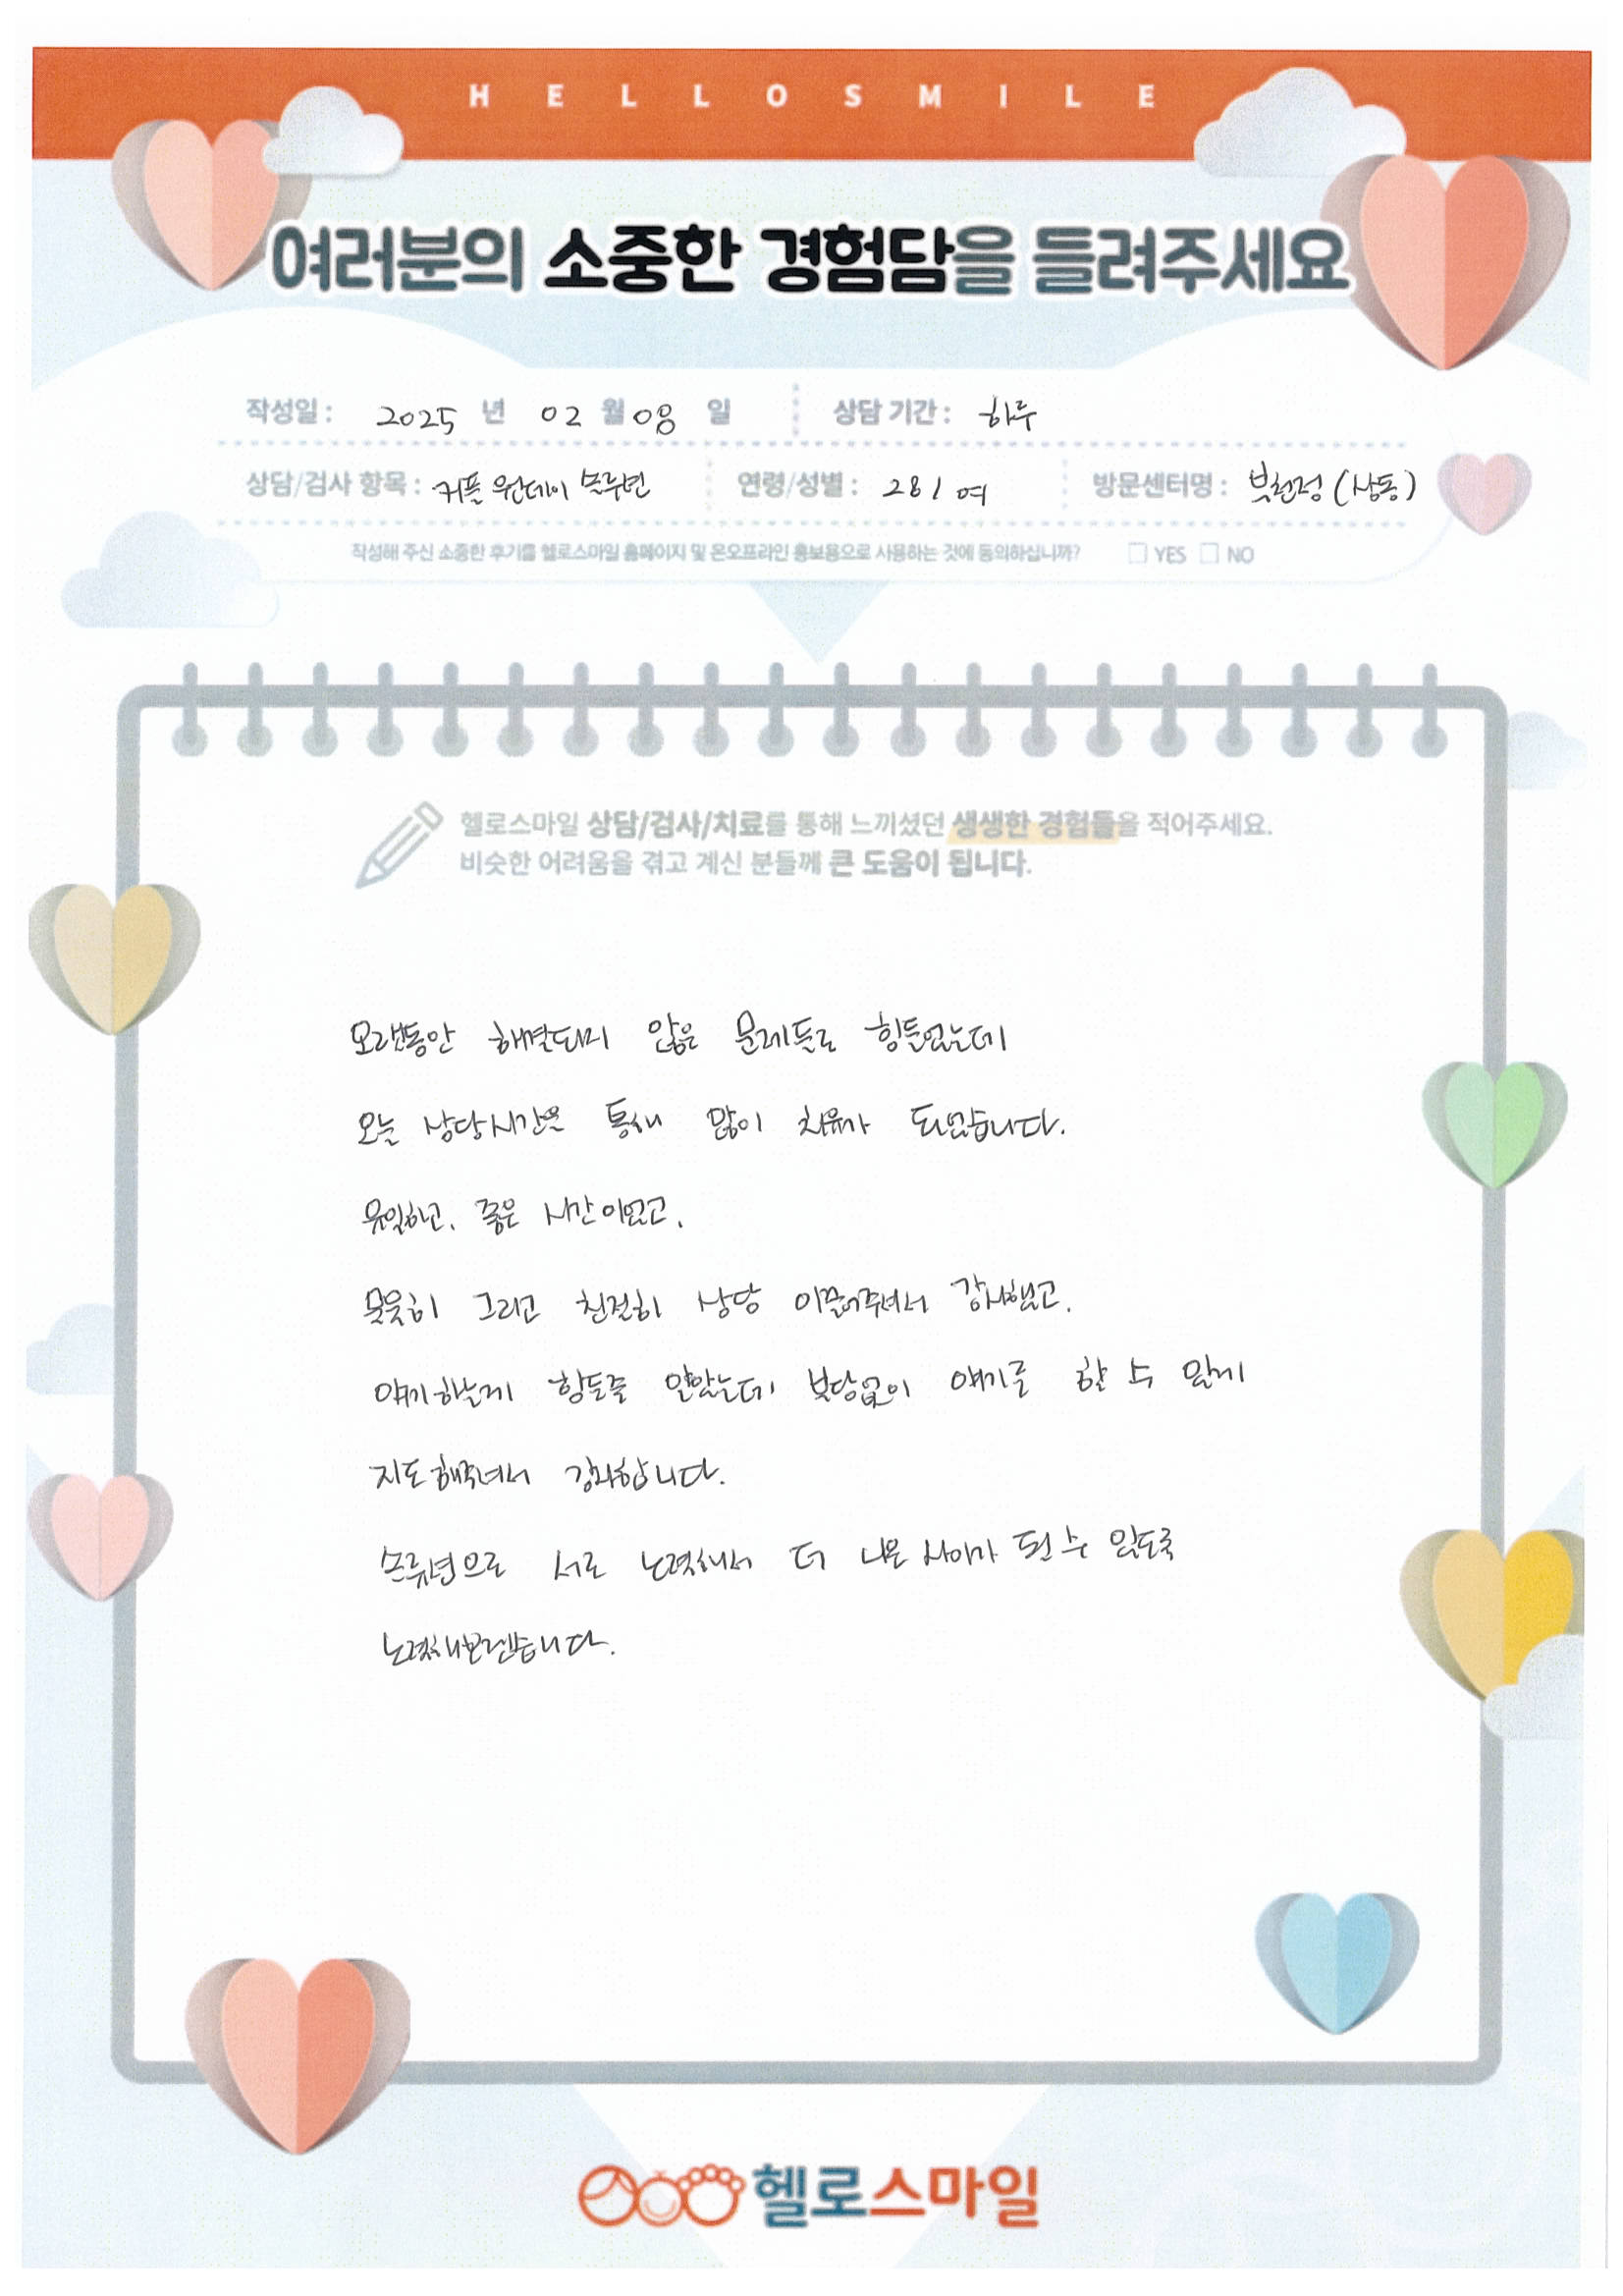 HELLOSMILE
여러분의 소중한 경험담을 들려주세요
작성일 : 2025 년 02 월 08 일 상담 기간 : 하루
상담/검사 항목 : 커플 원데이 솔루션 연령/성별 : 28 / 여 방문센터명 : 부천점 (상동)
작성해 주신 소중한 후기를 헬로스마일 홈페이지 및 온오프라인 홍보용으로 사용하는 것에 동의하십니까? YES NO
헬로스마일 상담/검사/치료를 통해 느끼셨던 생생한 경험들을 적어주세요.
비슷한 어려움을 겪고 계신 분들께 큰 도움이 됩니다.
오랫동안 해결되지 않은 문제들로 힘들었는데
오늘 상담시간을 통해 많이 치유가 되었습니다.
유일하고, 좋은 시간이었고,
그리고 친절히 상담 이끌어주셔서 감사했고,
얘기하는게 힘들줄 알았는데 부담없이 얘기를 할 수 있게
지도해주셔서 감사합니다.
솔루션으로 서로 노력해서 더 나은 사이가 될 수 있도록
노력해보겠습니다.
헬로스마일